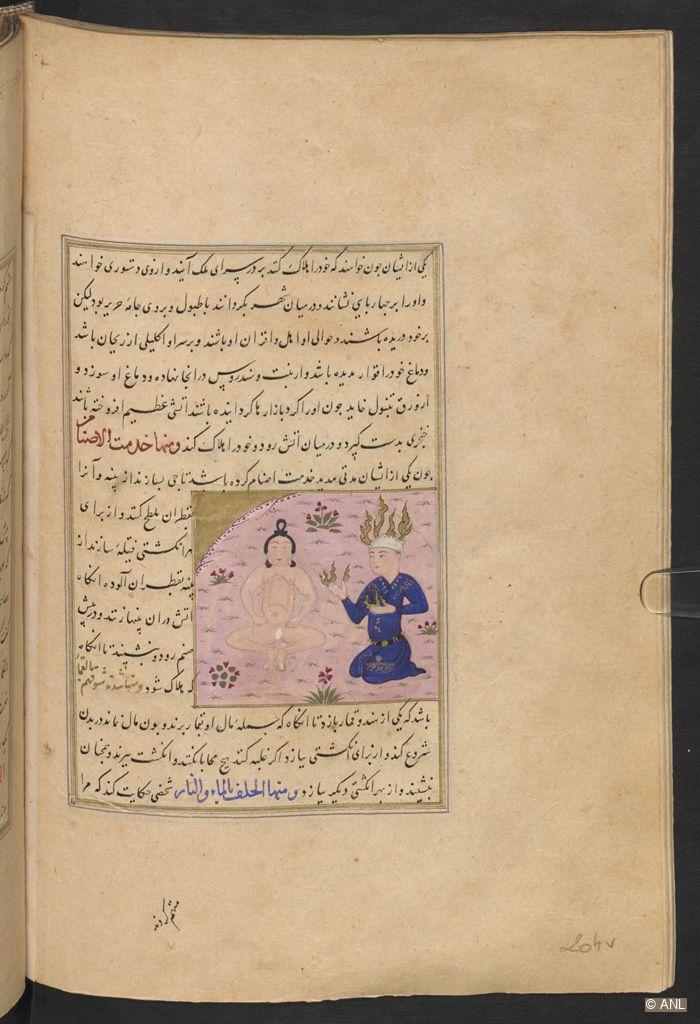 یکی از ایشان چون خواهند که خود را هلاک کند بر در سرای ملک آیند و از وی دستوری خواهند
و او را بر چهار پایی نشانند و در میان شهر بگردانند با طبول و بروی جامهٔ حریر بود لیکن
بر خود دریده باشند و حوالی او اهل و اقران او باشند و بر سر او اکلیلی از ریحان باشد
و دماغ خود را بریده باشد و سندروس در انجا نهاده و دماغ او سوزد و
از ورق تنبول خاید جون او را کرد بازارها کردانیده باشند اتشی عظیم افروخته باشند
خنجری بدست کیرد و در میان اتش رود و خود را هلاک کند ومنها خدمت الاصنام
چون یکی از ایشان مدتی مدید خدمت اصنام کرده باشد تاجی بسازند از پنبه و آنرا
بقطران ملطخ کنند و از برای
هر انکشتی فتیلهٔ سازند از
پنبه بقطران آلوده انکاه
اتش در ان بنهازند و در پیش
صنم رود و بنشیند تا انکاه
که هلاک شود ومنها شدة شوقهم فی مالقمار
باشد که یکی از هند و قمار بازد تا انکاه که جمله مال او بقمار برند و چون مال نماند در بدن
شروع کند و از برای انکشتی بیازد اکر غلبه کند هیچ محابا نکند و انکشت ببرند و همچنان
بنشیند و از بهر انکشتی دیکر بیازد ومنها الحلف بالماء والنار شخصی حکایت کند که مرا
© ANL